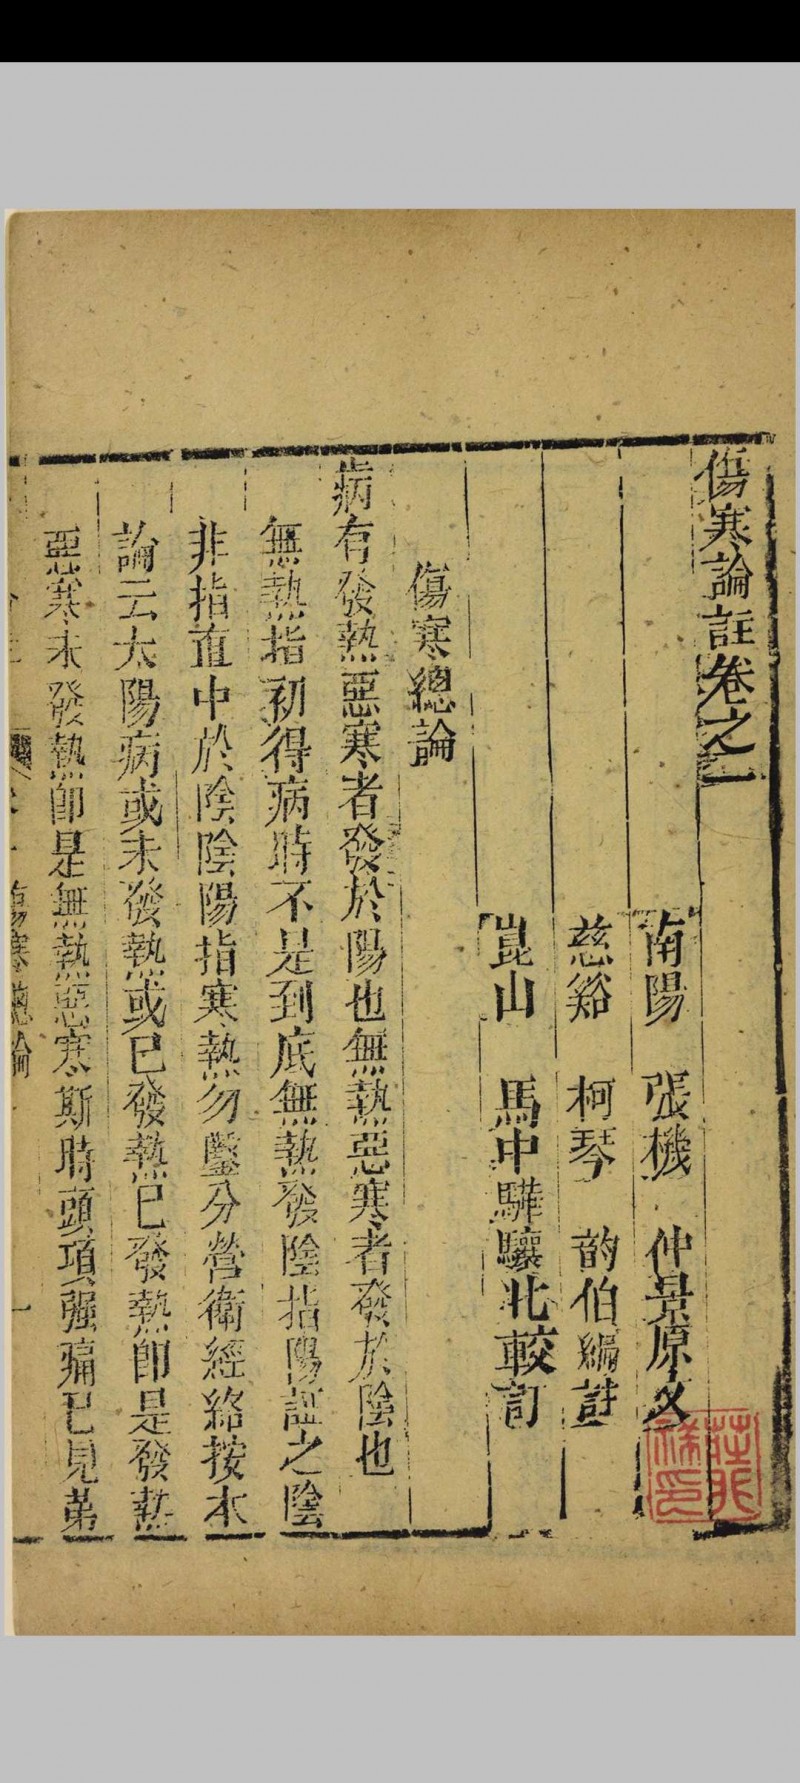 傷寒論註卷之一
南陽 張機 仲景原文
慈谿 柯琴 韵伯編註
崑山 馬中驊驤北較訂
傷寒總論
病有發熱惡寒者發於陽也無熱惡寒者發於陰也
無熱指初得病時不是到底無熱發陰指陽証之陰
非指直中於陰陰陽指寒熱勿鑿分營衛經絡按本
論云太陽病或未發熱或已發熱已發熱即是發熱
惡寒未發熱即是無熱惡寒斯時頭項强痛已見弟
傷寒總論
一